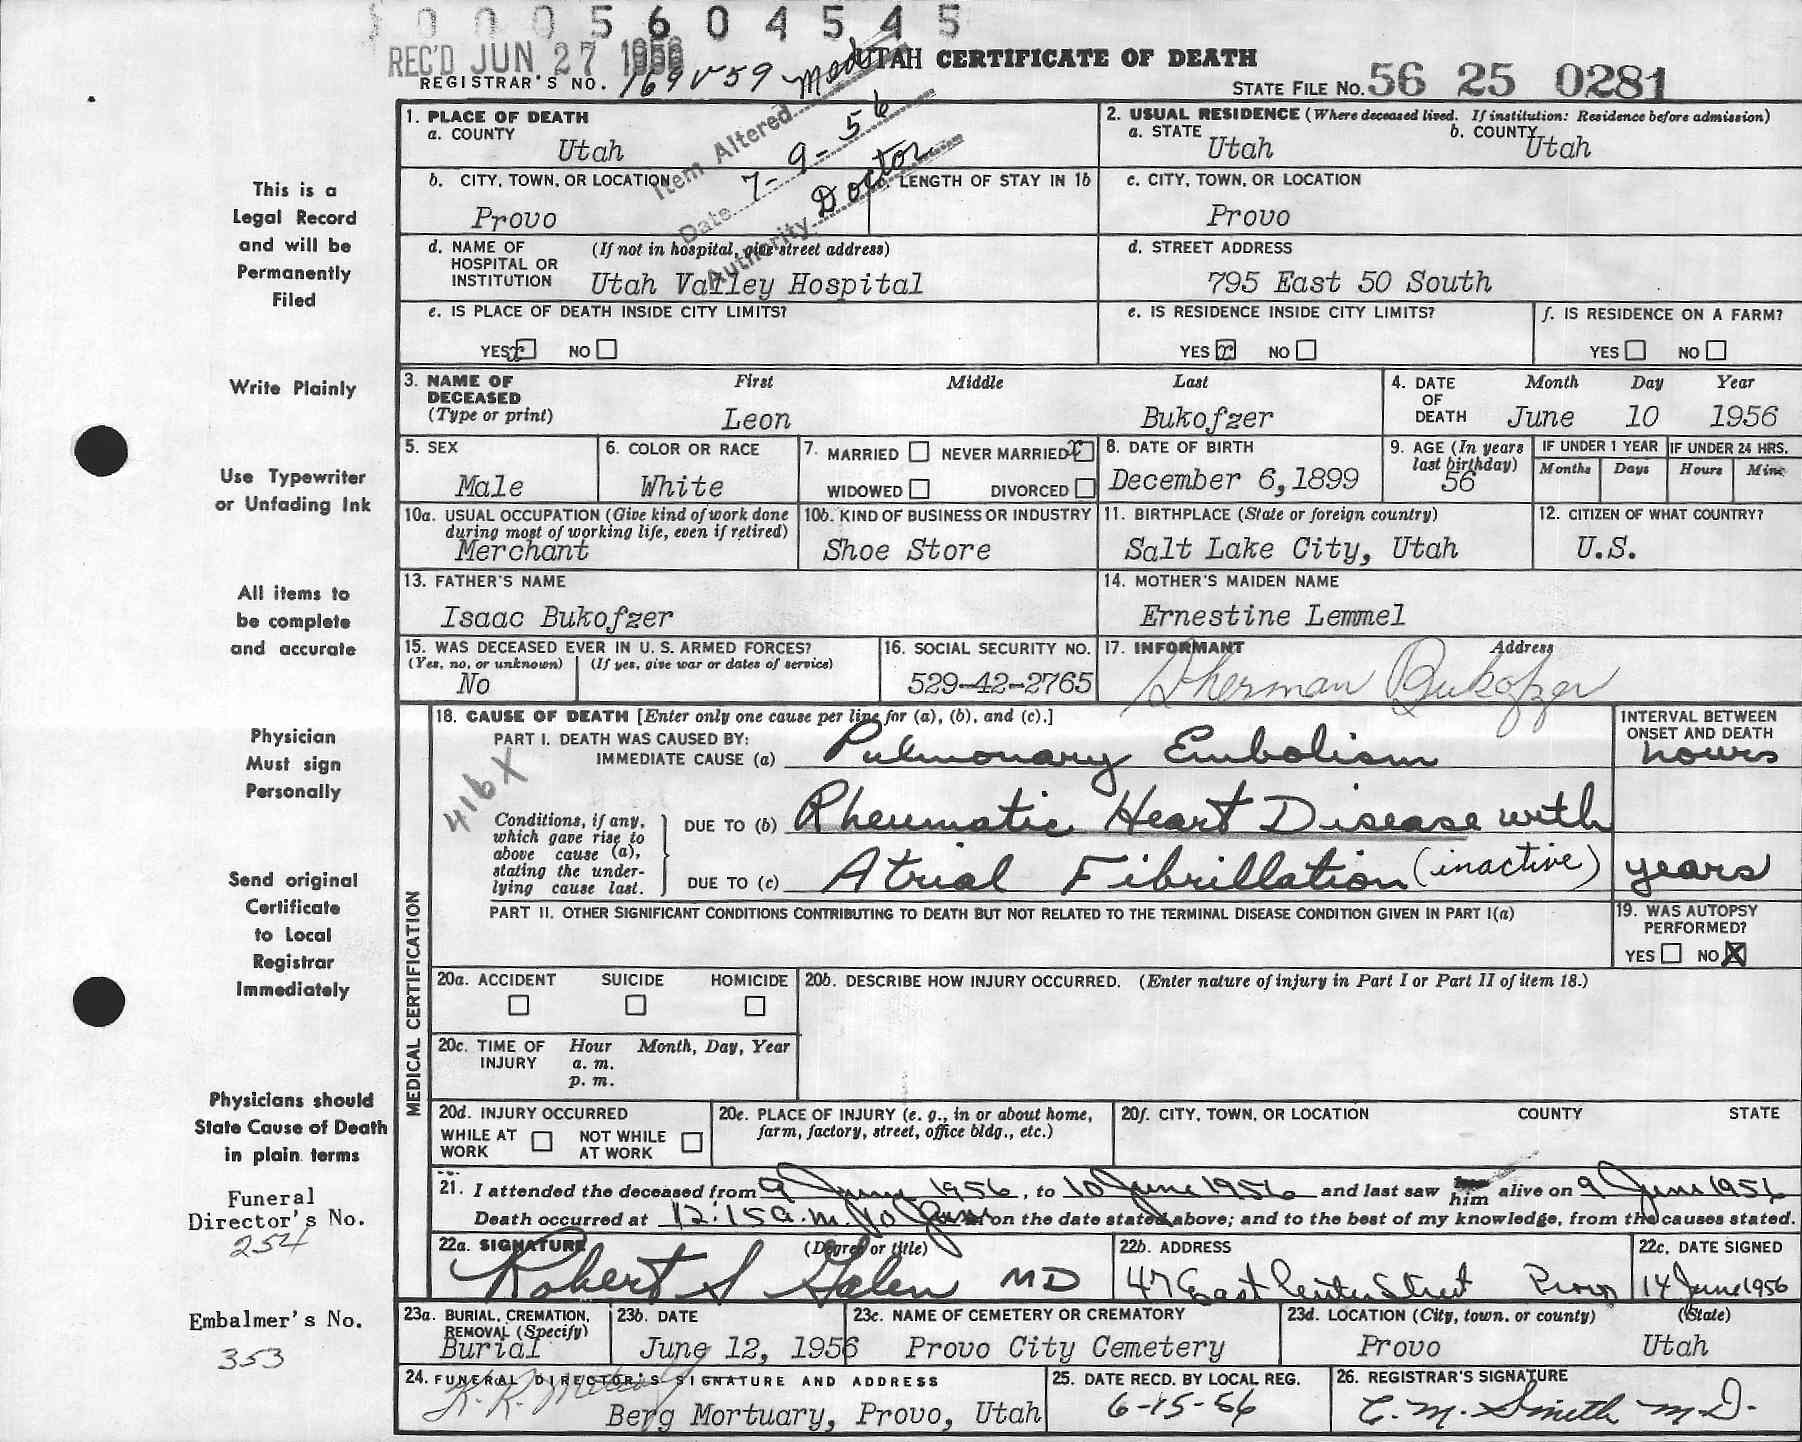 0 0 0 5 6 0 4 5 4 5
REC'D JUN 27 1956
UTAH CERTIFICATE OF DEATH
REGISTRAR'S NO. 169 V 59 Med
STATE FILE NO. 56 25 0281
Item Altered
Date 7-9-56
Authority Doctor
1. PLACE OF DEATH
a. COUNTY
Utah
2. USUAL RESIDENCE (Where deceased lived. If institution: Residence before admission)
a. STATE b. COUNTY
Utah Utah
b. CITY, TOWN, OR LOCATION
Provo
LENGTH OF STAY IN 1b
c. CITY, TOWN, OR LOCATION
Provo
d. NAME OF HOSPITAL OR INSTITUTION
(If not in hospital, give street address)
Utah Valley Hospital
d. STREET ADDRESS
795 East 50 South
e. IS PLACE OF DEATH INSIDE CITY LIMITS?
YES x NO
e. IS RESIDENCE INSIDE CITY LIMITS?
YES x NO
f. IS RESIDENCE ON A FARM?
YES NO
3. NAME OF DECEASED
(Type or print)
First Middle Last
Leon Bukofzer
4. DATE OF DEATH
Month Day Year
June 10 1956
5. SEX
Male
6. COLOR OR RACE
White
7. MARRIED NEVER MARRIED x
WIDOWED DIVORCED
8. DATE OF BIRTH
December 6, 1899
9. AGE (In years last birthday)
56
IF UNDER 1 YEAR
Months Days
IF UNDER 24 HRS.
Hours Min.
10a. USUAL OCCUPATION (Give kind of work done during most of working life, even if retired)
Merchant
10b. KIND OF BUSINESS OR INDUSTRY
Shoe Store
11. BIRTHPLACE (State or foreign country)
Salt Lake City, Utah
12. CITIZEN OF WHAT COUNTRY?
U.S.
13. FATHER'S NAME
Isaac Bukofzer
14. MOTHER'S MAIDEN NAME
Ernestine Lemmel
15. WAS DECEASED EVER IN U. S. ARMED FORCES?
(Yes, no, or unknown) (If yes, give war or dates of service)
No
16. SOCIAL SECURITY NO.
529-42-2765
17. INFORMANT Address
Sherman Bukofzer
MEDICAL CERTIFICATION
18. CAUSE OF DEATH [Enter only one cause per line for (a), (b), and (c).]
PART I. DEATH WAS CAUSED BY:
IMMEDIATE CAUSE (a) Pulmonary Embolism
INTERVAL BETWEEN ONSET AND DEATH
hours
416X
Conditions, if any, which gave rise to above cause (a), stating the underlying cause last.
DUE TO (b) Rheumatic Heart Disease with
DUE TO (c) Atrial Fibrillation (inactive) years
PART II. OTHER SIGNIFICANT CONDITIONS CONTRIBUTING TO DEATH BUT NOT RELATED TO THE TERMINAL DISEASE CONDITION GIVEN IN PART I(a)
19. WAS AUTOPSY PERFORMED?
YES NO X
20a. ACCIDENT SUICIDE HOMICIDE
20b. DESCRIBE HOW INJURY OCCURRED. (Enter nature of injury in Part I or Part II of item 18.)
20c. TIME OF INJURY
Hour Month, Day, Year
a. m.
p. m.
20d. INJURY OCCURRED
WHILE AT WORK NOT WHILE AT WORK
20e. PLACE OF INJURY (e. g., in or about home, farm, factory, street, office bldg., etc.)
20f. CITY, TOWN, OR LOCATION COUNTY STATE
21. I attended the deceased from 9 June 1956, to 10 June 1956 and last saw him alive on 9 June 1956
Death occurred at 12:15 a.m. 10 June on the date stated above; and to the best of my knowledge, from the causes stated.
22a. SIGNATURE (Degree or title)
Robert S Galen MD
22b. ADDRESS
47 East Center Street Provo
22c. DATE SIGNED
14 June 1956
23a. BURIAL, CREMATION, REMOVAL (Specify)
Burial
23b. DATE
June 12, 1956
23c. NAME OF CEMETERY OR CREMATORY
Provo City Cemetery
23d. LOCATION (City, town, or county) (State)
Provo Utah
24. FUNERAL DIRECTOR'S SIGNATURE AND ADDRESS
Berg Mortuary, Provo, Utah
25. DATE RECD. BY LOCAL REG.
6-15-56
26. REGISTRAR'S SIGNATURE
C. M. Smith M.D.
This is a
Legal Record
and will be
Permanently
Filed
Write Plainly
Use Typewriter
or Unfading Ink
All items to
be complete
and accurate
Physician
Must sign
Personally
Send original
Certificate
to Local
Registrar
Immediately
Physicians should
State Cause of Death
in plain terms
Funeral
Director's No.
254
Embalmer's No.
353